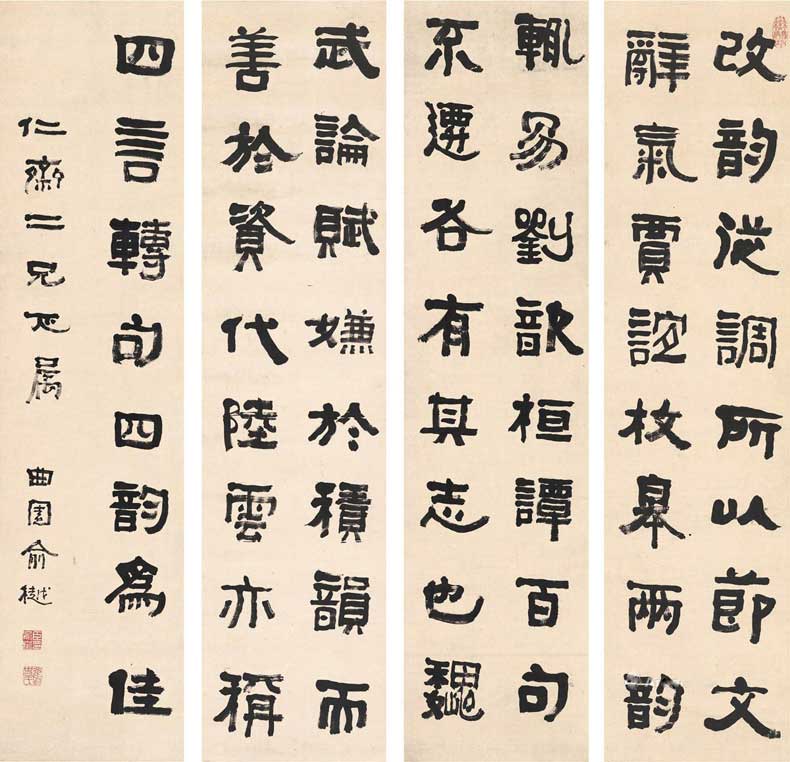 改韵從調所以節文
辭氣賈誼枚皋兩韵
輒易劉歆桓譚百句
不遷各有其志也魏
武論賦嫌於積韻而
善於資代陸雲亦稱
四言轉句四韵爲佳
仁齋二兄正屬 曲園俞樾